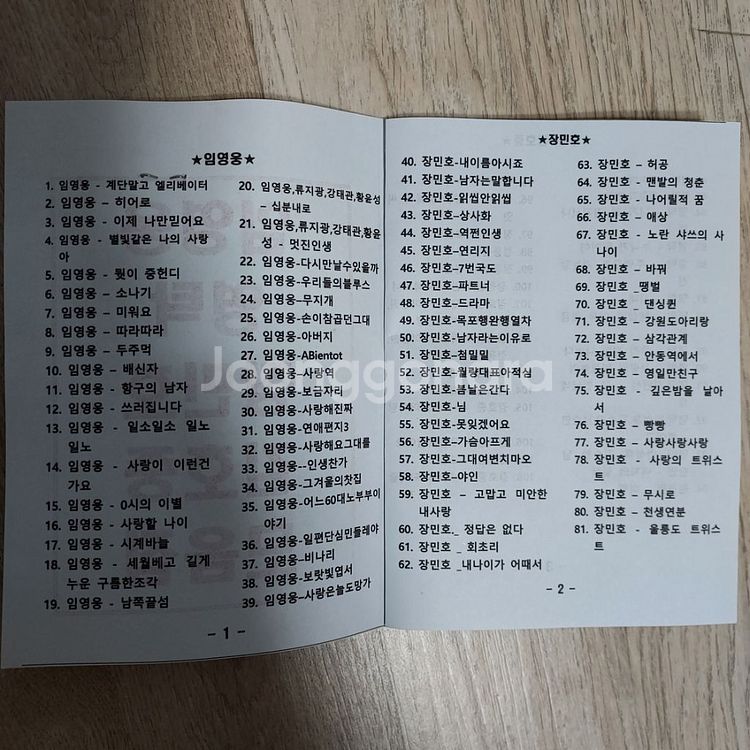 ★임영웅★
1. 임영웅 - 계단말고 엘리베이터
2. 임영웅 – 히어로
3. 임영웅 - 이제 나만믿어요
4. 임영웅 - 별빛같은 나의 사랑
아
5. 임영웅 – 뭣이 중헌디
6. 임영웅 – 소나기
7. 임영웅 – 미워요
8. 임영웅 – 따라따라
9. 임영웅 – 두주먹
10. 임영웅 – 배신자
11. 임영웅 - 항구의 남자
12. 임영웅 - 쓰러집니다
13. 임영웅 - 일소일소 일노
일노
14. 임영웅 - 사랑이 이런건
가요
15. 임영웅 - 0시의 이별
16. 임영웅 - 사랑할 나이
17. 임영웅 - 시계바늘
18. 임영웅 - 세월베고 길게
누운 구름한조각
19. 임영웅 - 남쪽끝섬
20. 임영웅,류지광,강태관,황윤성
– 십분내로
21. 임영웅,류지광,강태관,황윤
성 - 멋진인생
22. 임영웅-다시만날수있을까
23. 임영웅-우리들의블루스
24. 임영웅-무지개
25. 임영웅-손이참곱던그대
26. 임영웅-아버지
27. 임영웅-ABientot
28. 임영웅-사랑역
29. 임영웅-보금자리
30. 임영웅-사랑해진짜
31. 임영웅-연애편지3
32. 임영웅-사랑해요그대를
33. 임영웅--인생찬가
34. 임영웅-그겨울의찻집
35. 임영웅-어느60대노부부이
야기
36. 임영웅-일편단심민들레야
37. 임영웅-비나리
38. 임영웅-보랏빛엽서
39. 임영웅-사랑은늘도망가
- 1 -
★장민호★
40. 장민호-내이름아시죠
41. 장민호-남자는말합니다
42. 장민호-읽씹안읽씹
43. 장민호-상사화
44. 장민호-역쩐인생
45. 장민호-연리지
46. 장민호-7번국도
47. 장민호-파트너
48. 장민호-드라마
49. 장민호-목포행완행열차
50. 장민호-남자라는이유로
51. 장민호-첨밀밀
52. 장민호-월량대표아적심
53. 장민호-봄날은간다
54. 장민호-님
55. 장민호-못잊겠어요
56. 장민호-가슴아프게
57. 장민호-그대여변치마오
58. 장민호-야인
59. 장민호 – 고맙고 미안한
내사랑
60. 장민호._ 정답은 없다
61. 장민호 _ 회초리
62. 장민호 _내나이가 어때서
63. 장민호 – 허공
64. 장민호 - 맨발의 청춘
65. 장민호 - 나어릴적 꿈
66. 장민호 – 애상
67. 장민호 - 노란 샤쓰의 사
나이
68. 장민호 – 바꿔
69. 장민호 _땡벌
70. 장민호 _ 댄싱퀸
71. 장민호 – 강원도아리랑
72. 장민호 – 삼각관계
73. 장민호 – 안동역에서
74. 장민호 – 영일만친구
75. 장민호 - 깊은밤을 날아
서
76. 장민호 – 빵빵
77. 장민호 – 사랑사랑사랑
78. 장민호 - 사랑의 트위스
트
79. 장민호 – 무시로
80. 장민호 – 천생연분
81. 장민호 - 울릉도 트위스
트
- 2 -
Joonggonara